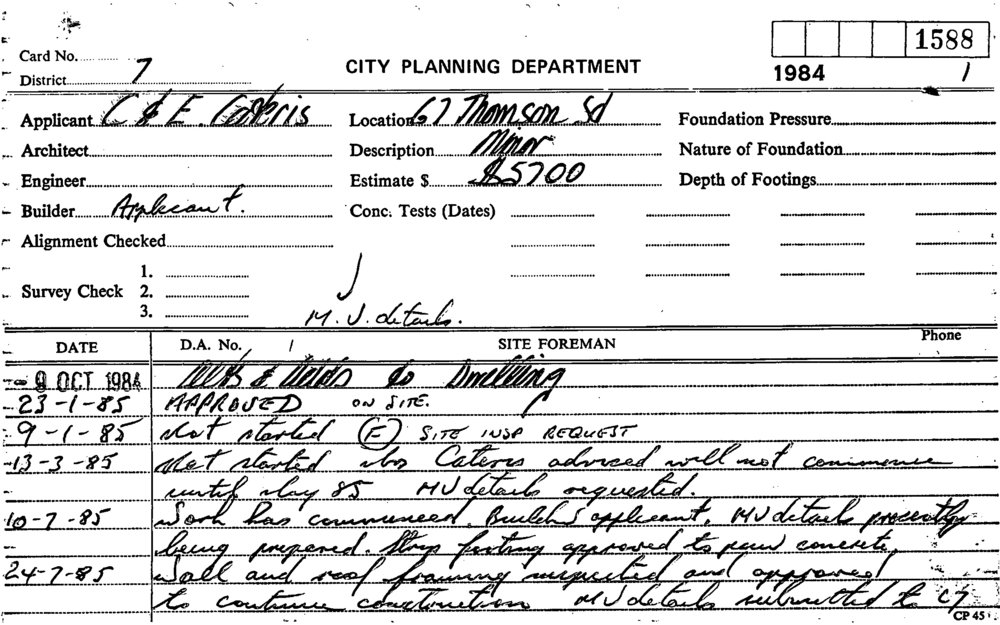 1588
Card No.
District 7
CITY PLANNING DEPARTMENT
1984 /
Applicant C & E.
Location 67 Thomson Sd
Foundation Pressure
Architect
Description Minor
Nature of Foundation
Engineer
Estimate $ $5700
Depth of Footings
Builder Applicant.
Conc. Tests (Dates)
Alignment Checked
1.
Survey Check 2.
3.
M.V. details.
DATE D.A. No. / SITE FOREMAN Phone
9 OCT 1984 Alts & Adds to Dwelling
23-1-85 APPROVED ON SITE.
9-1-85 Not started (F) SITE INSP REQUEST
13-3-85 Not started Mrs Cateris adviced will not commence
until May 85 MV details requested.
10-7-85 Work has commenced. Builder applicant. MV details presently
being prepared. Strip footing approved to pour concrete
24-7-85 Wall and roof framing inspected and approved
to continue construction MV details submitted to
CP 45